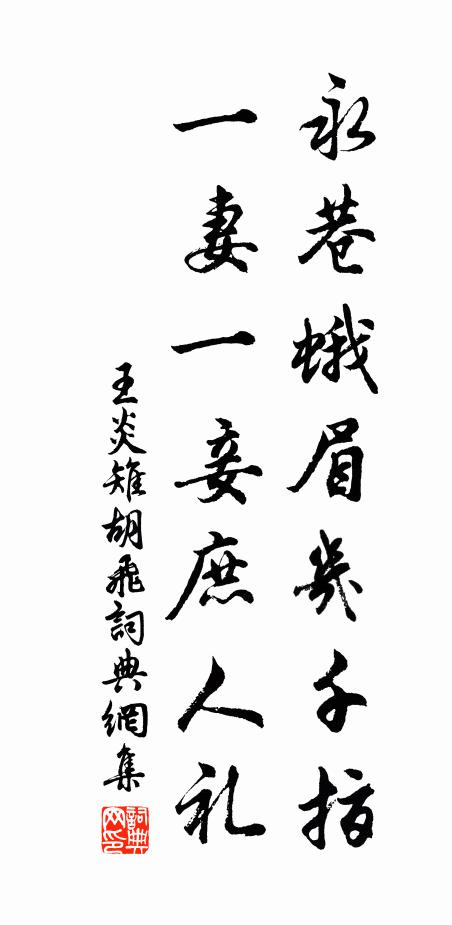 永巷蛾眉幾千指
一妻一妾庶人礼
王炎雉胡飛詞典網集
詞典网印